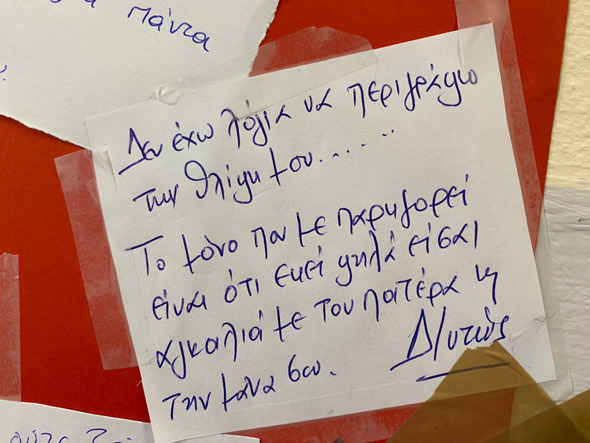 πάντα
Δεν έχω λόγια να περιγράψω
την θλίψη μου......
Το μόνο που με παρηγορεί
είναι ότι εκεί ψηλά είσαι
αγκαλιά με τον πατέρα κ
την μάνα σου.
Δ/ντής